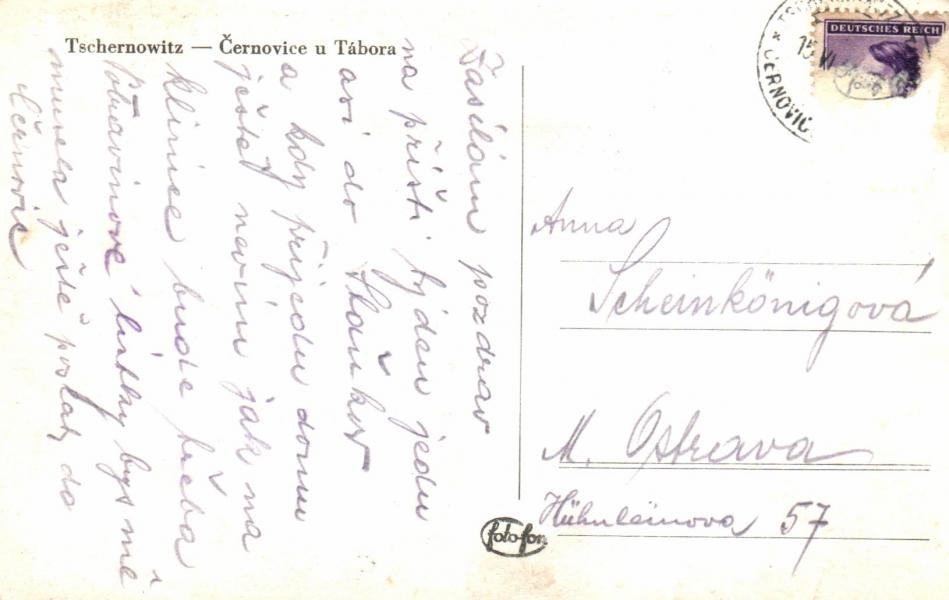 Tschernowitz — Černovice u Tábora
Zasílám pozdrav
na příští týden jedu
asi do
a kdy přijedu domu
ještě nevím jak na
klinice bude třeba
Potravinové lístky bys mě
musela ještě poslat do
Černovic
DEUTSCHES REICH
15 VI
ČERNOVIC
Anna
Scheinkönigová
M. Ostrava
Hühnleinova 57
foto-fon